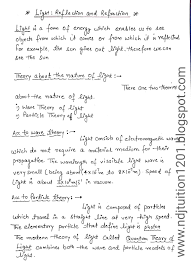 * Light : Reflection and Refraction *
* Light is a form of energy which enables us to see
objects from which it comes or from which it is reflected
for example, the sun gives out light, therefore we can
see the sun.
Theory about the nature of light :-
There are two theories
about the nature of light
1) Wave Theory of light
2) Particle Theory of light
Acc to wave theory :-
Light consists of electromagnetic wa
which do not require a material medium for their
propagation. The wavelength of visible light wave is
very small (being about 4x10⁻⁷m to 8x10⁻⁷m). Speed of
light is about 3x10⁸ m/s in vacuum.
Acc to Particle theory :-
Light is composed of particles
which travel in a straight line at very high speed.
The elementary particle that defines light is photon
The modern theory of light called Quantum Theory of
Light combines both the wave and particle models of
light.
www.djtuition12011.blogspot.com